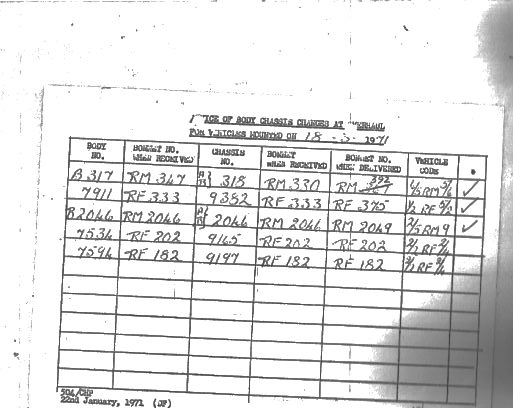 OF BODY CHASSIS CHANGES AT OVERHAUL
FOR VEHICLES MOUNTED ON 18 - 3 - 1971
BODY NO. BONNET NO. WHEN RECEIVED CHASSIS NO. BONNET WHEN RECEIVED BONNET NO. WHEN DELIVERED VEHICLE CODE
B317 RM 347 318 RM 330 RM ✓
7911 RF 333 9382 RF 333 RF 375 ✓
B2046 RM 2046 2046 RM 2046 RM 2049 2/5 RM 9 ✓
7534 RF 202 9165 RF 202 RF 202
7594 RF 182 9197 RF 182 RF 182
50A/CHP
22nd January, 1971 (JF)